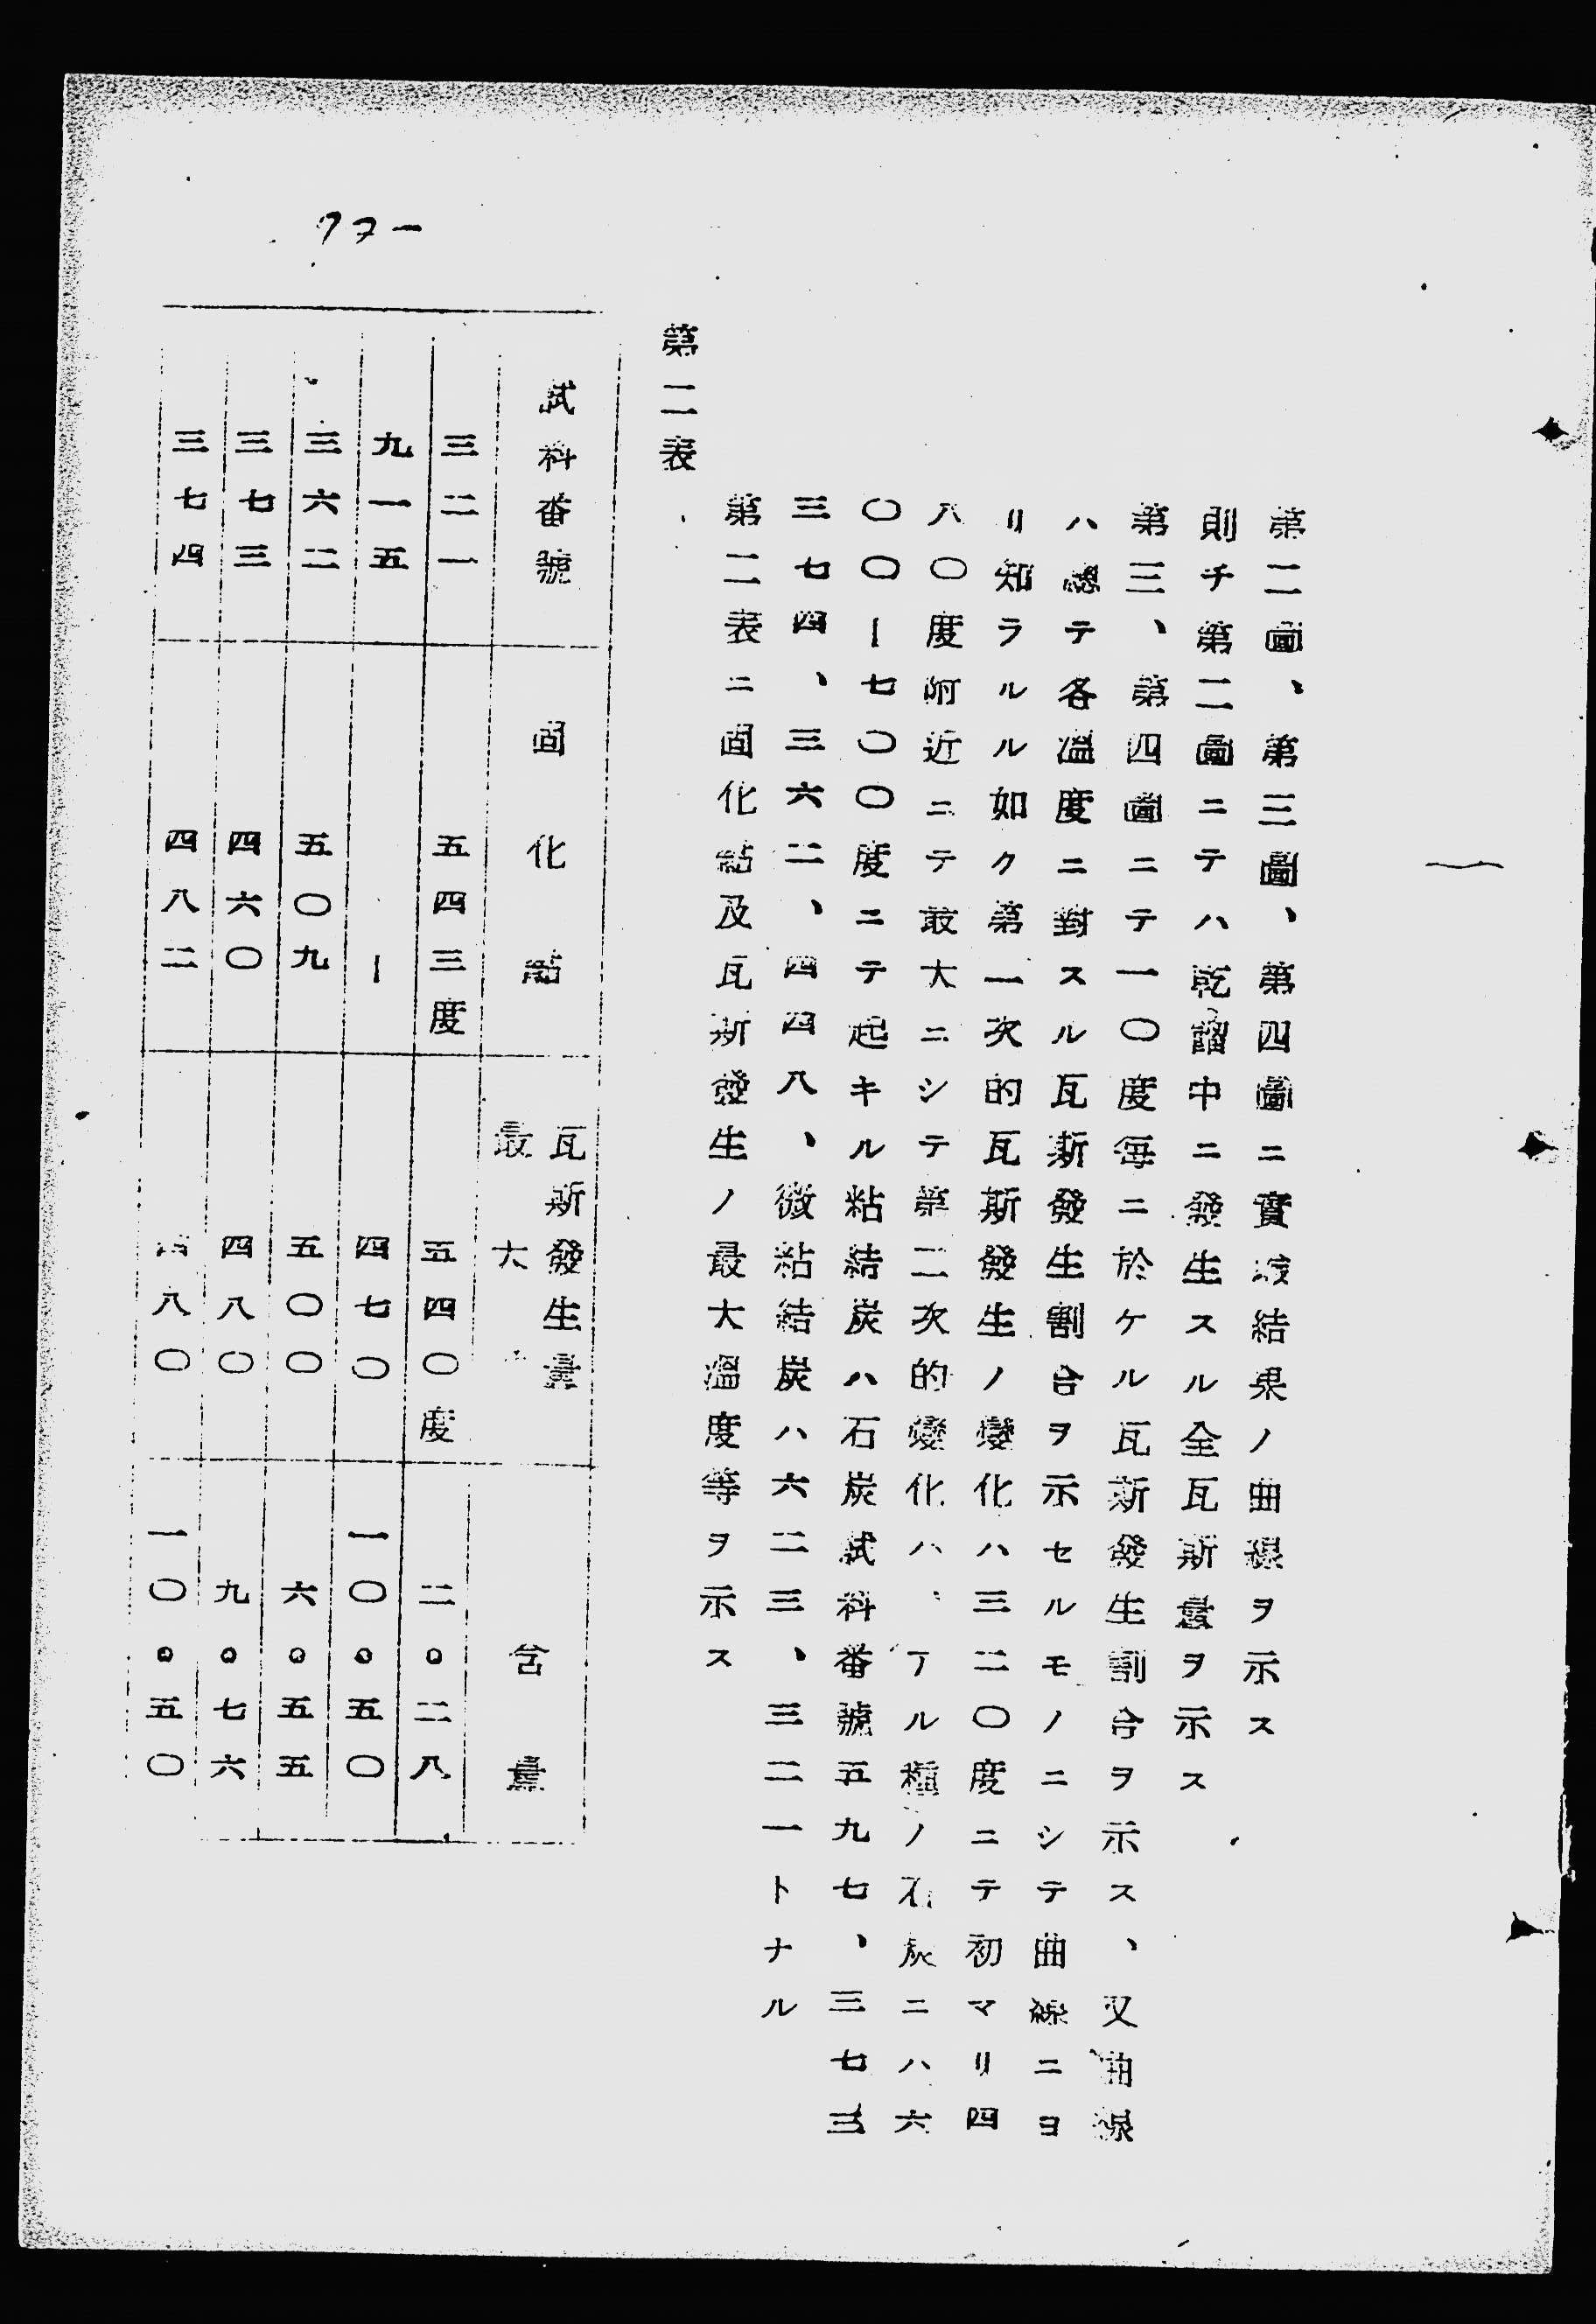 第二圖、第三圖、第四圖ニ實驗結果ノ曲線ヲ示ス
則チ第二圖ニテハ乾餾中ニ發生スル全瓦斯量ヲ示ス
第三、第四圖ニテ一〇度每ニ於ケル瓦斯發生割合ヲ示ス、又曲線
ハ總テ各溫度ニ對スル瓦斯發生割合ヲ示セルモノニシテ曲線ニヨ
リ知ラルル如ク第一次的瓦斯發生ノ變化ハ三二〇度ニテ初マリ四
八〇度附近ニテ最大ニシテ第二次的變化ハ、アル種ノ石炭ニハ六
〇〇ー七〇〇度ニテ起キル粘結炭ハ石炭試料番號五九七、三七三
三七四、三六二、四四八、微粘結炭ハ六二三、三二一トナル
第二表ニ固化點及瓦斯發生ノ最大溫度等ヲ示ス
第二表
試料番號 固化點 瓦斯發生量最大 含量
三二一 五四三度 五四〇度 二。二八
九一五 ー 四七〇 一〇。五〇
三六二 五〇九 五〇〇 六。五五
三七三 四六〇 四八〇 九。七六
三七四 四八二 八〇 一〇。五〇